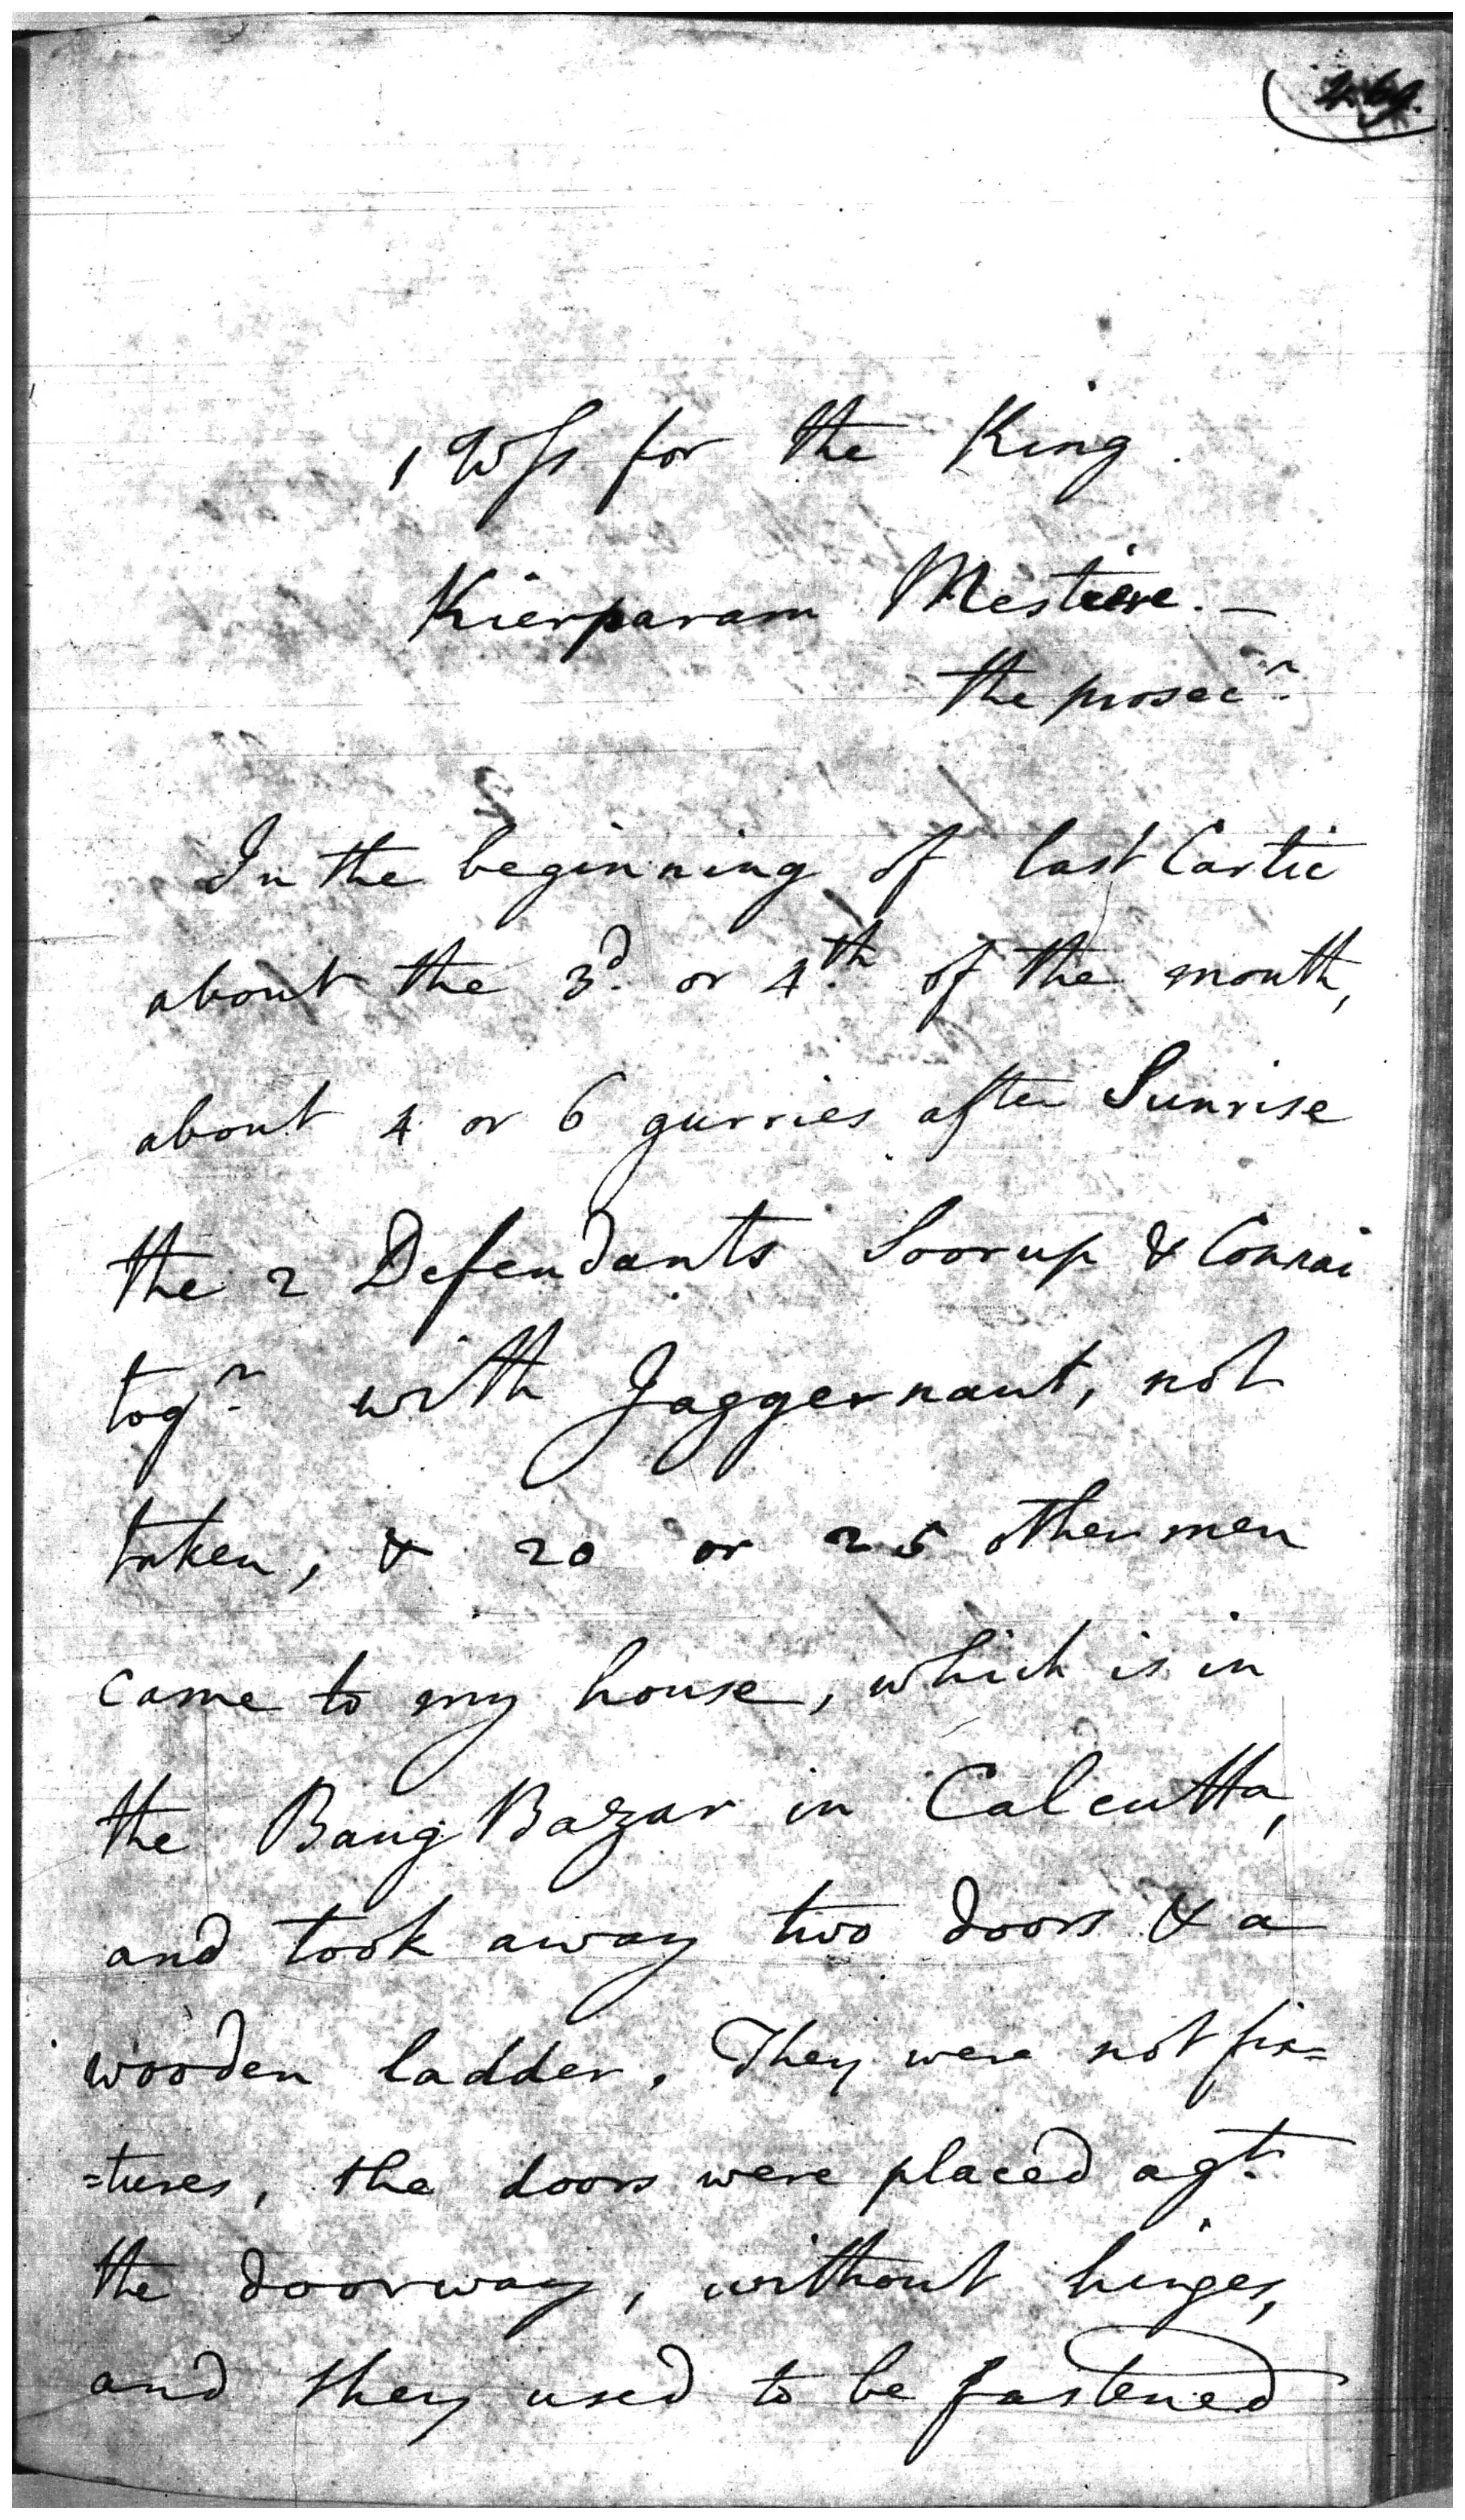 1 Wss for the King.
Kierparam Mestiere. —
the prosecr.
In the beginning of last Cartic
about the 3d. or 4th. of the month,
about 4 or 6 gurries after Sunrise
the 2 Defendants Soorup & Connai
togr. with Jaggernaut, not
taken, & 20 or 25 other men
came to my house, which is in
the Baug Bazar in Calcutta,
and took away two doors & a
wooden ladder. They were not fix=
=tures, the doors were placed agt.
the doorway, without hinges,
and they used to be fastened